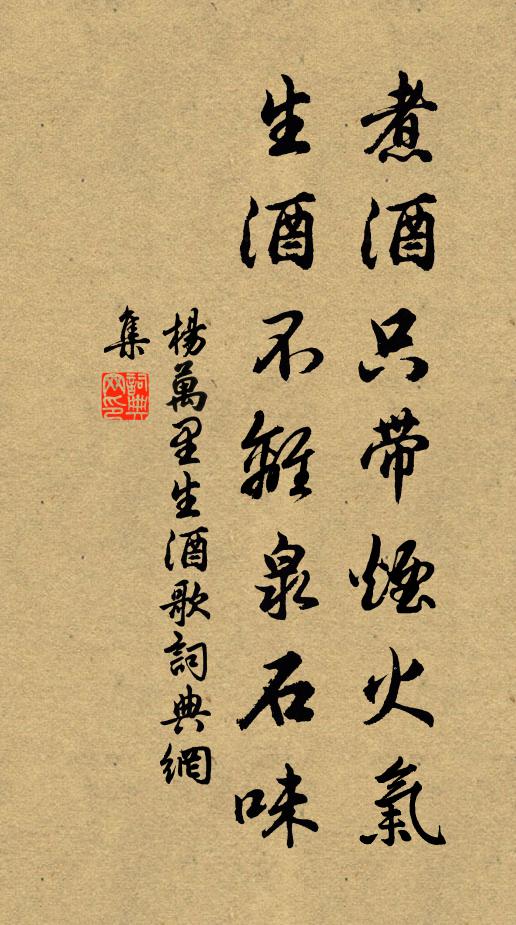 煮酒只帶煙火氣
生酒不離泉石味
楊萬里生酒歌詞典網
集
詞典網印